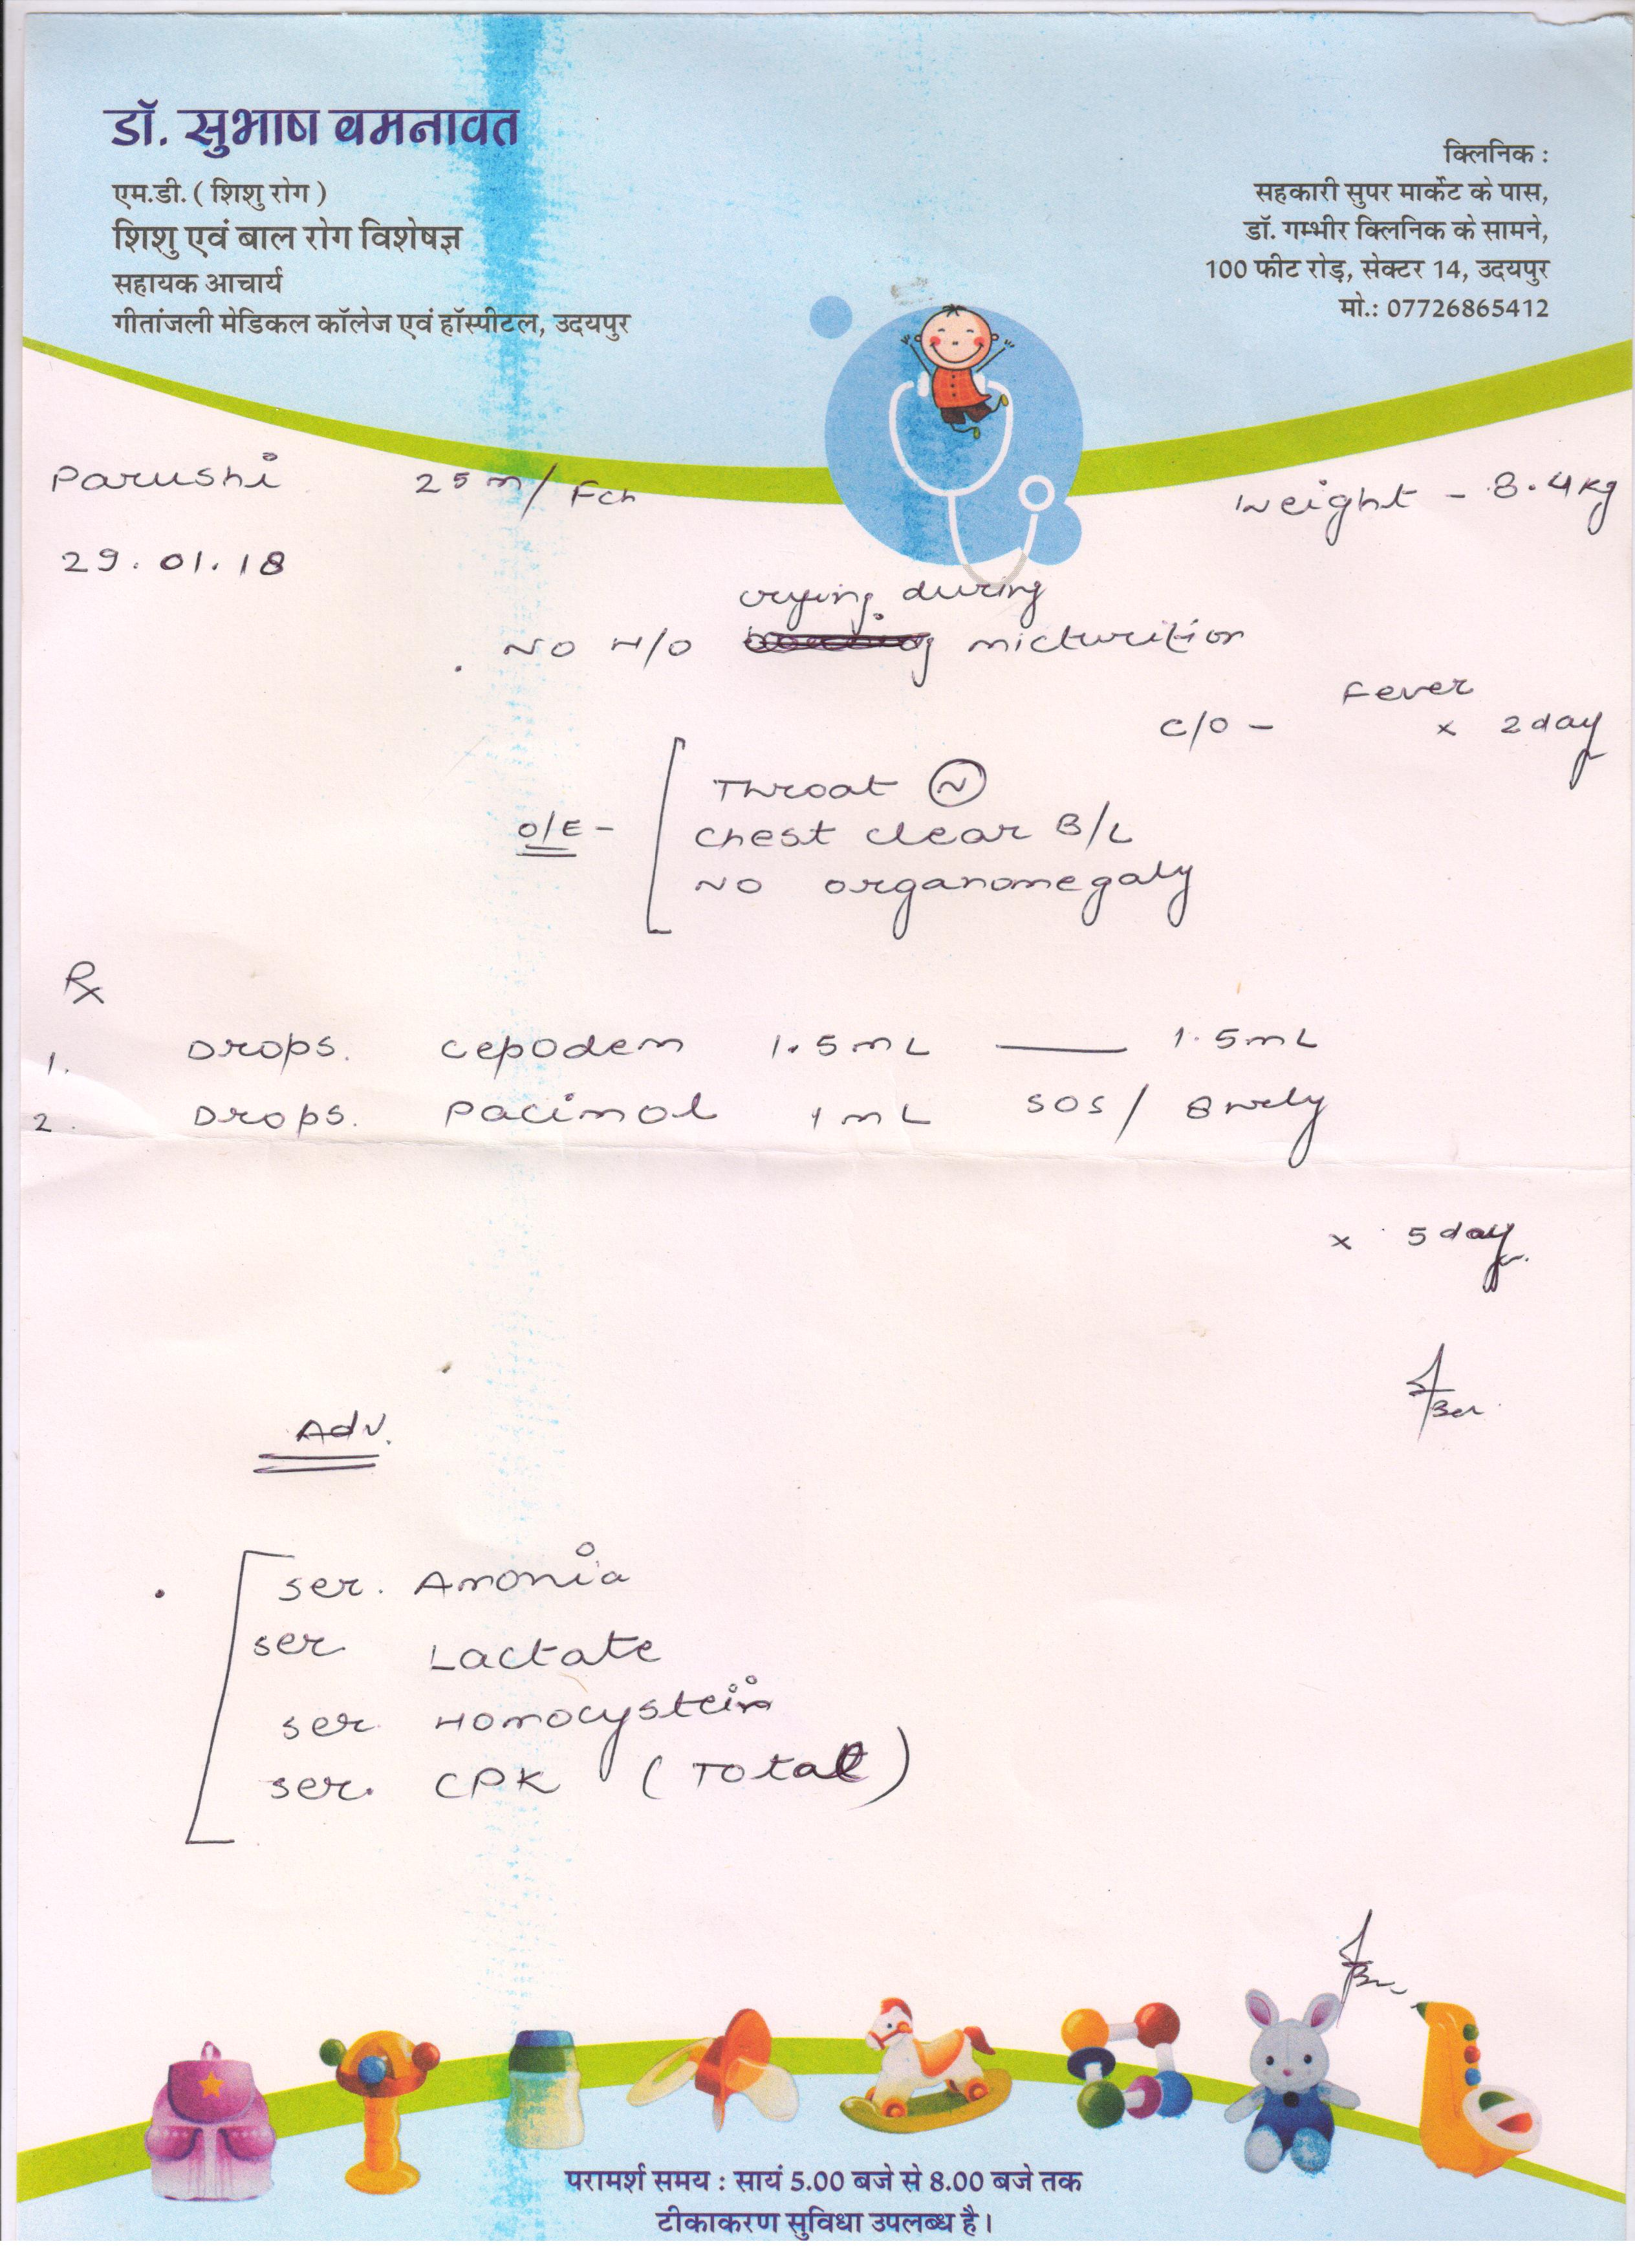 डॉ. सुभाष बमनावत
एम.डी. ( शिशु रोग )
शिशु एवं बाल रोग विशेषज्ञ
सहायक आचार्य
गीतांजली मेडिकल कॉलेज एवं हॉस्पीटल, उदयपुर
क्लिनिक :
सहकारी सुपर मार्केट के पास,
डॉ. गम्भीर क्लिनिक के सामने,
100 फीट रोड़, सेक्टर 14, उदयपुर
मो.: 07726865412
Parushi 25 m/ Fch Weight - 8.4 kg
29.01.18
crying during
No H/O micturition
Fever
C/O - x 2 day
Throat (N)
O/E - chest clear B/L
No organomegaly
Rx
1. Drops. cepodem 1.5 mL — 1.5 mL
2. Drops. Pacimol 1 mL SOS/ 8 hrly
x 5 day
Adv.
ser. Amonia
ser Lactate
ser. Homocystein
ser. CPK (Total)
परामर्श समय : सायं 5.00 बजे से 8.00 बजे तक
टीकाकरण सुविधा उपलब्ध है।